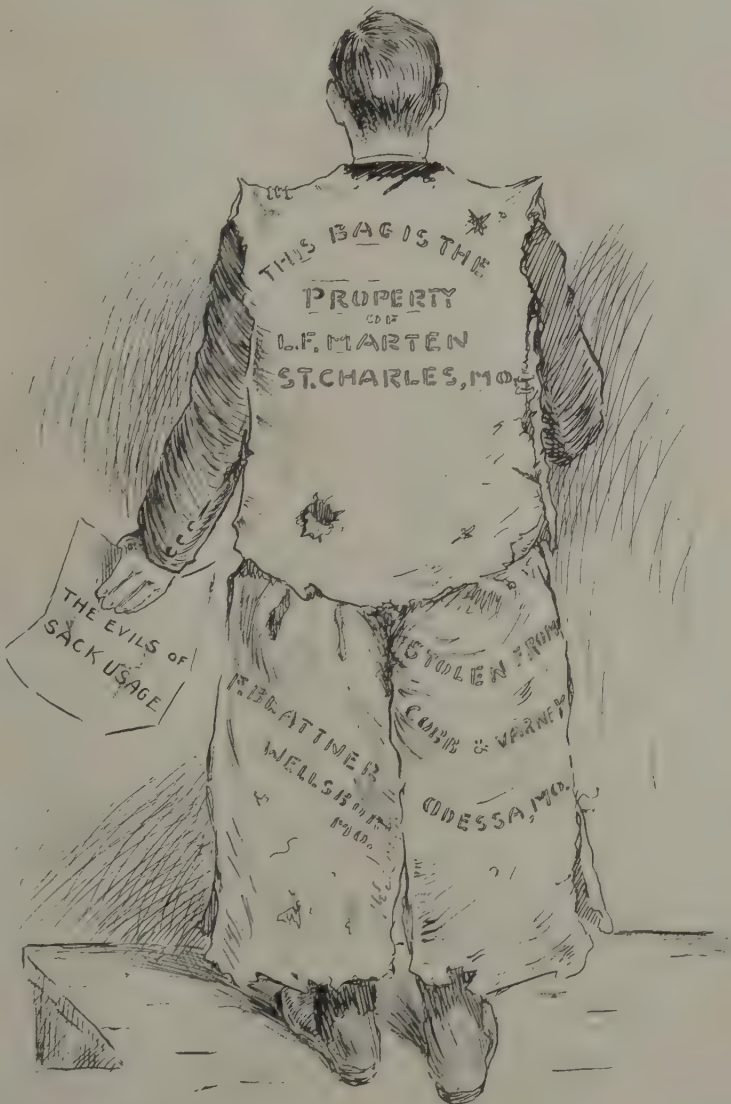 THIS BAG IS THE
PROPERTY
OF
L.F. MARTEN
ST. CHARLES, MO.
THE EVILS OF
SACK USAGE
F. BLATTNER
WELLSBUR
MO.
STOLEN FROM
COBB & VARNEY
ODESSA, MO.